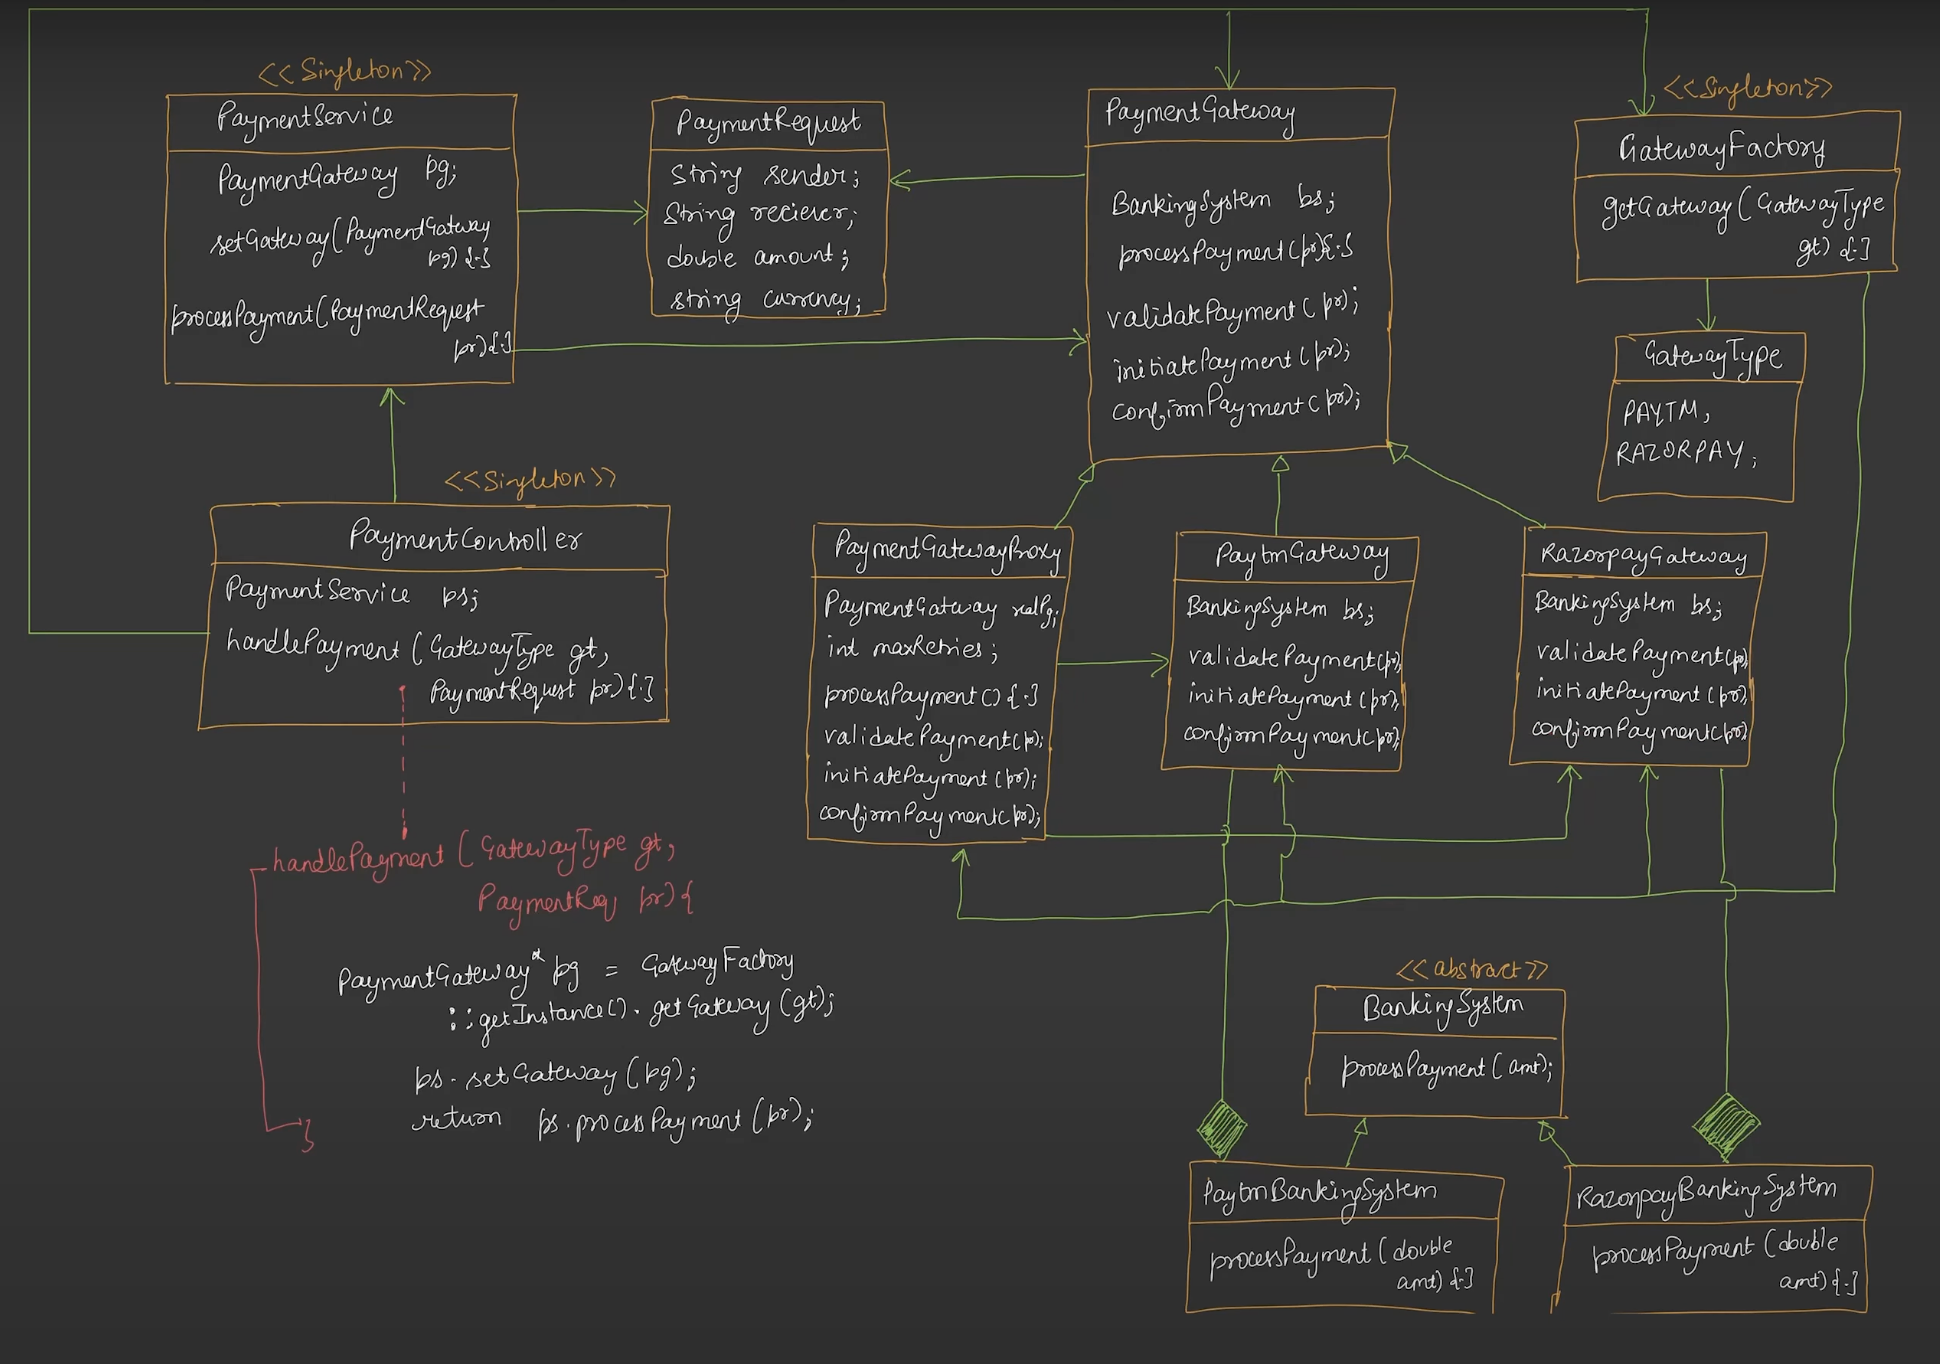 <<Singleton>>
PaymentService
PaymentGateway pg;
setGateway(PaymentGateway
pg) {.}
processPayment(PaymentRequest
pr){.}
PaymentRequest
String sender;
String reciever;
double amount;
string currency;
PaymentGateway
BankingSystem bs;
processPayment(pr){.}
validatePayment(pr);
initiatePayment(pr);
confirmPayment(pr);
<<Singleton>>
GatewayFactory
getGateway(GatewayType
gt) {.}
GatewayType
PAYTM,
RAZORPAY;
<<Singleton>>
PaymentController
PaymentService ps;
handlePayment (GatewayType gt,
PaymentRequest pr){.}
PaymentGatewayProxy
PaymentGateway realPg;
int maxRetries;
processPayment() {.}
validatePayment(pr);
initiatePayment(pr);
confirmPayment(pr);
PaytmGateway
BankingSystem bs;
validatePayment(pr);
initiatePayment(pr);
confirmPayment(pr);
RazorpayGateway
BankingSystem bs;
validatePayment(pr)
initiatePayment(pr)
confirmPayment(pr)
handlePayment (GatewayType gt,
PaymentReq pr){
PaymentGateway* pg = GatewayFactory
::getInstance().getGateway(gt);
ps.setGateway(pg);
return ps.processPayment(pr);
}
<<abstract>>
BankingSystem
processPayment(amt);
PaytmBankingSystem
processPayment(double
amt) {.}
RazorpayBankingSystem
processPayment (double
amt) {.}